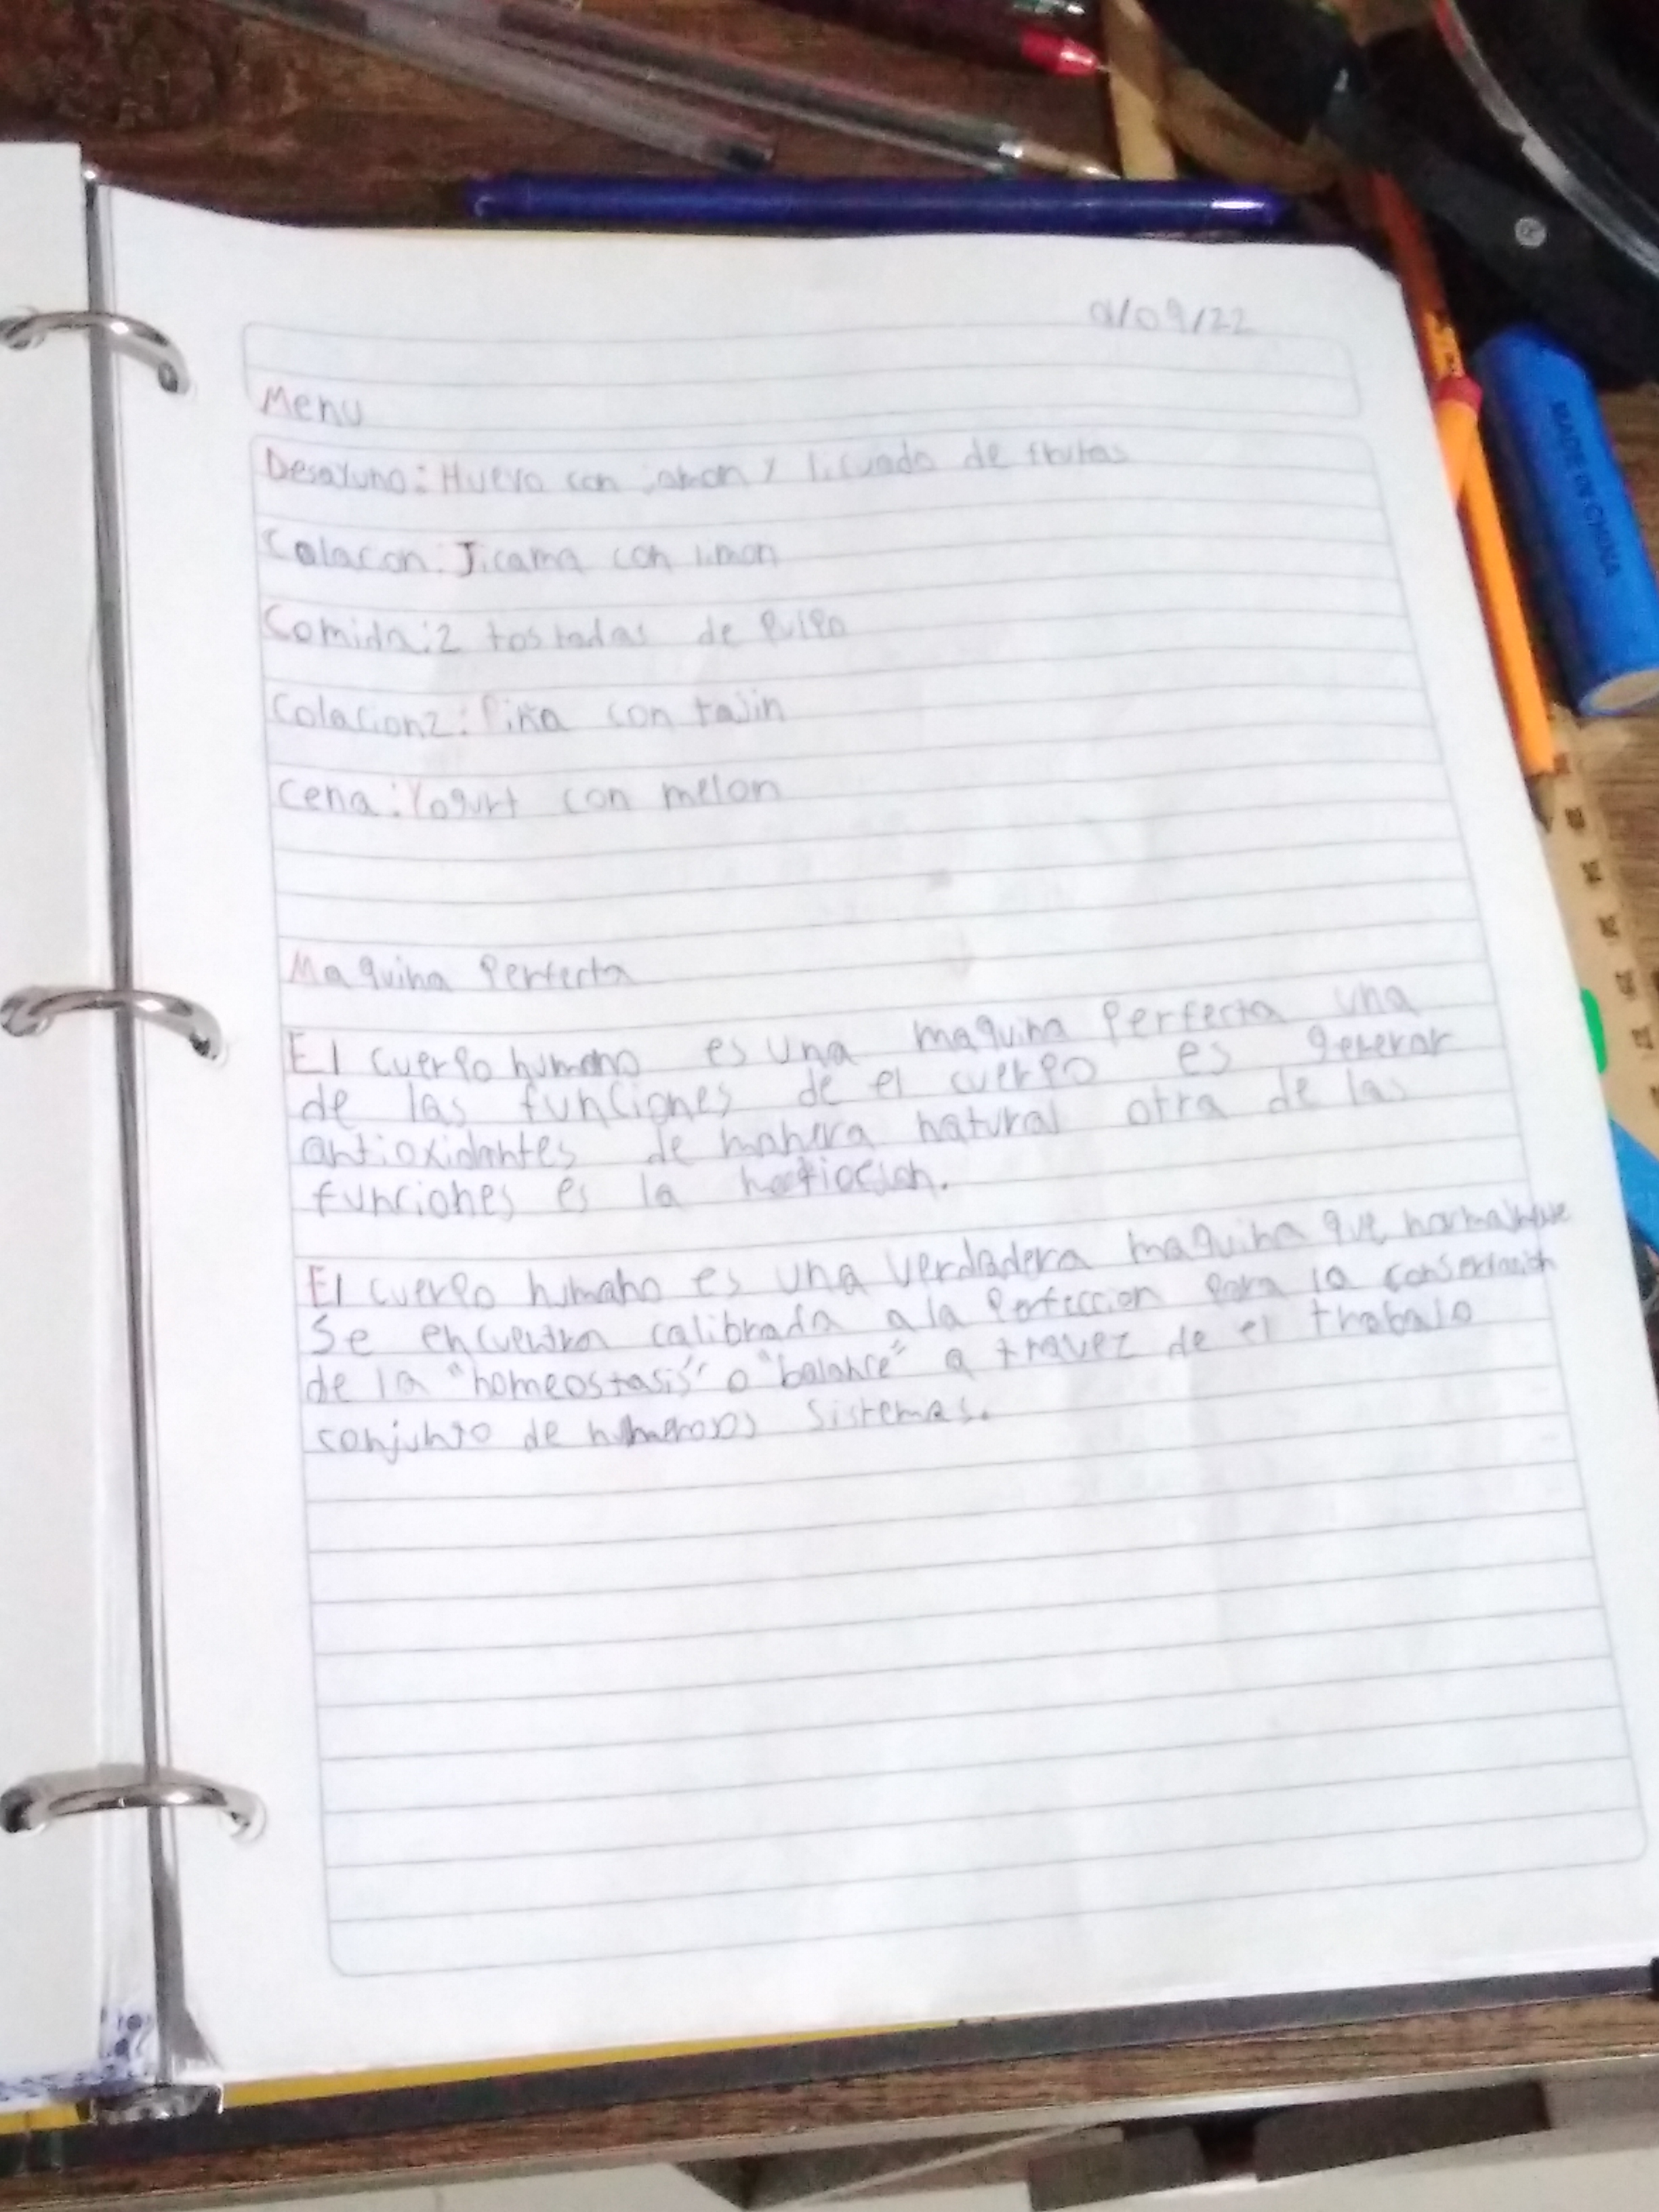 01/09/22
Menu
Desayuno: Huevo con jamon y licuado de frutas
Colacon: Jicama con limon
Comida: 2 tostadas de Pulpo
Colacion2: Piña con tajin
Cena: Yogurt con melon
Maquina Perfecta
El cuerpo humano es una maquina Perfecta una
de las funciones de el cuerpo es generar
antioxidantes de manera natural otra de las
funciones es la
El cuerpo humano es una verdadera maquina que normalmente
Se encuentra calibrada a la Perfeccion para la conservacion
de la "homeostasis" o "balance" a travez de el trabajo
conjunto de numerosos sistemas.
MADE IN CHINA